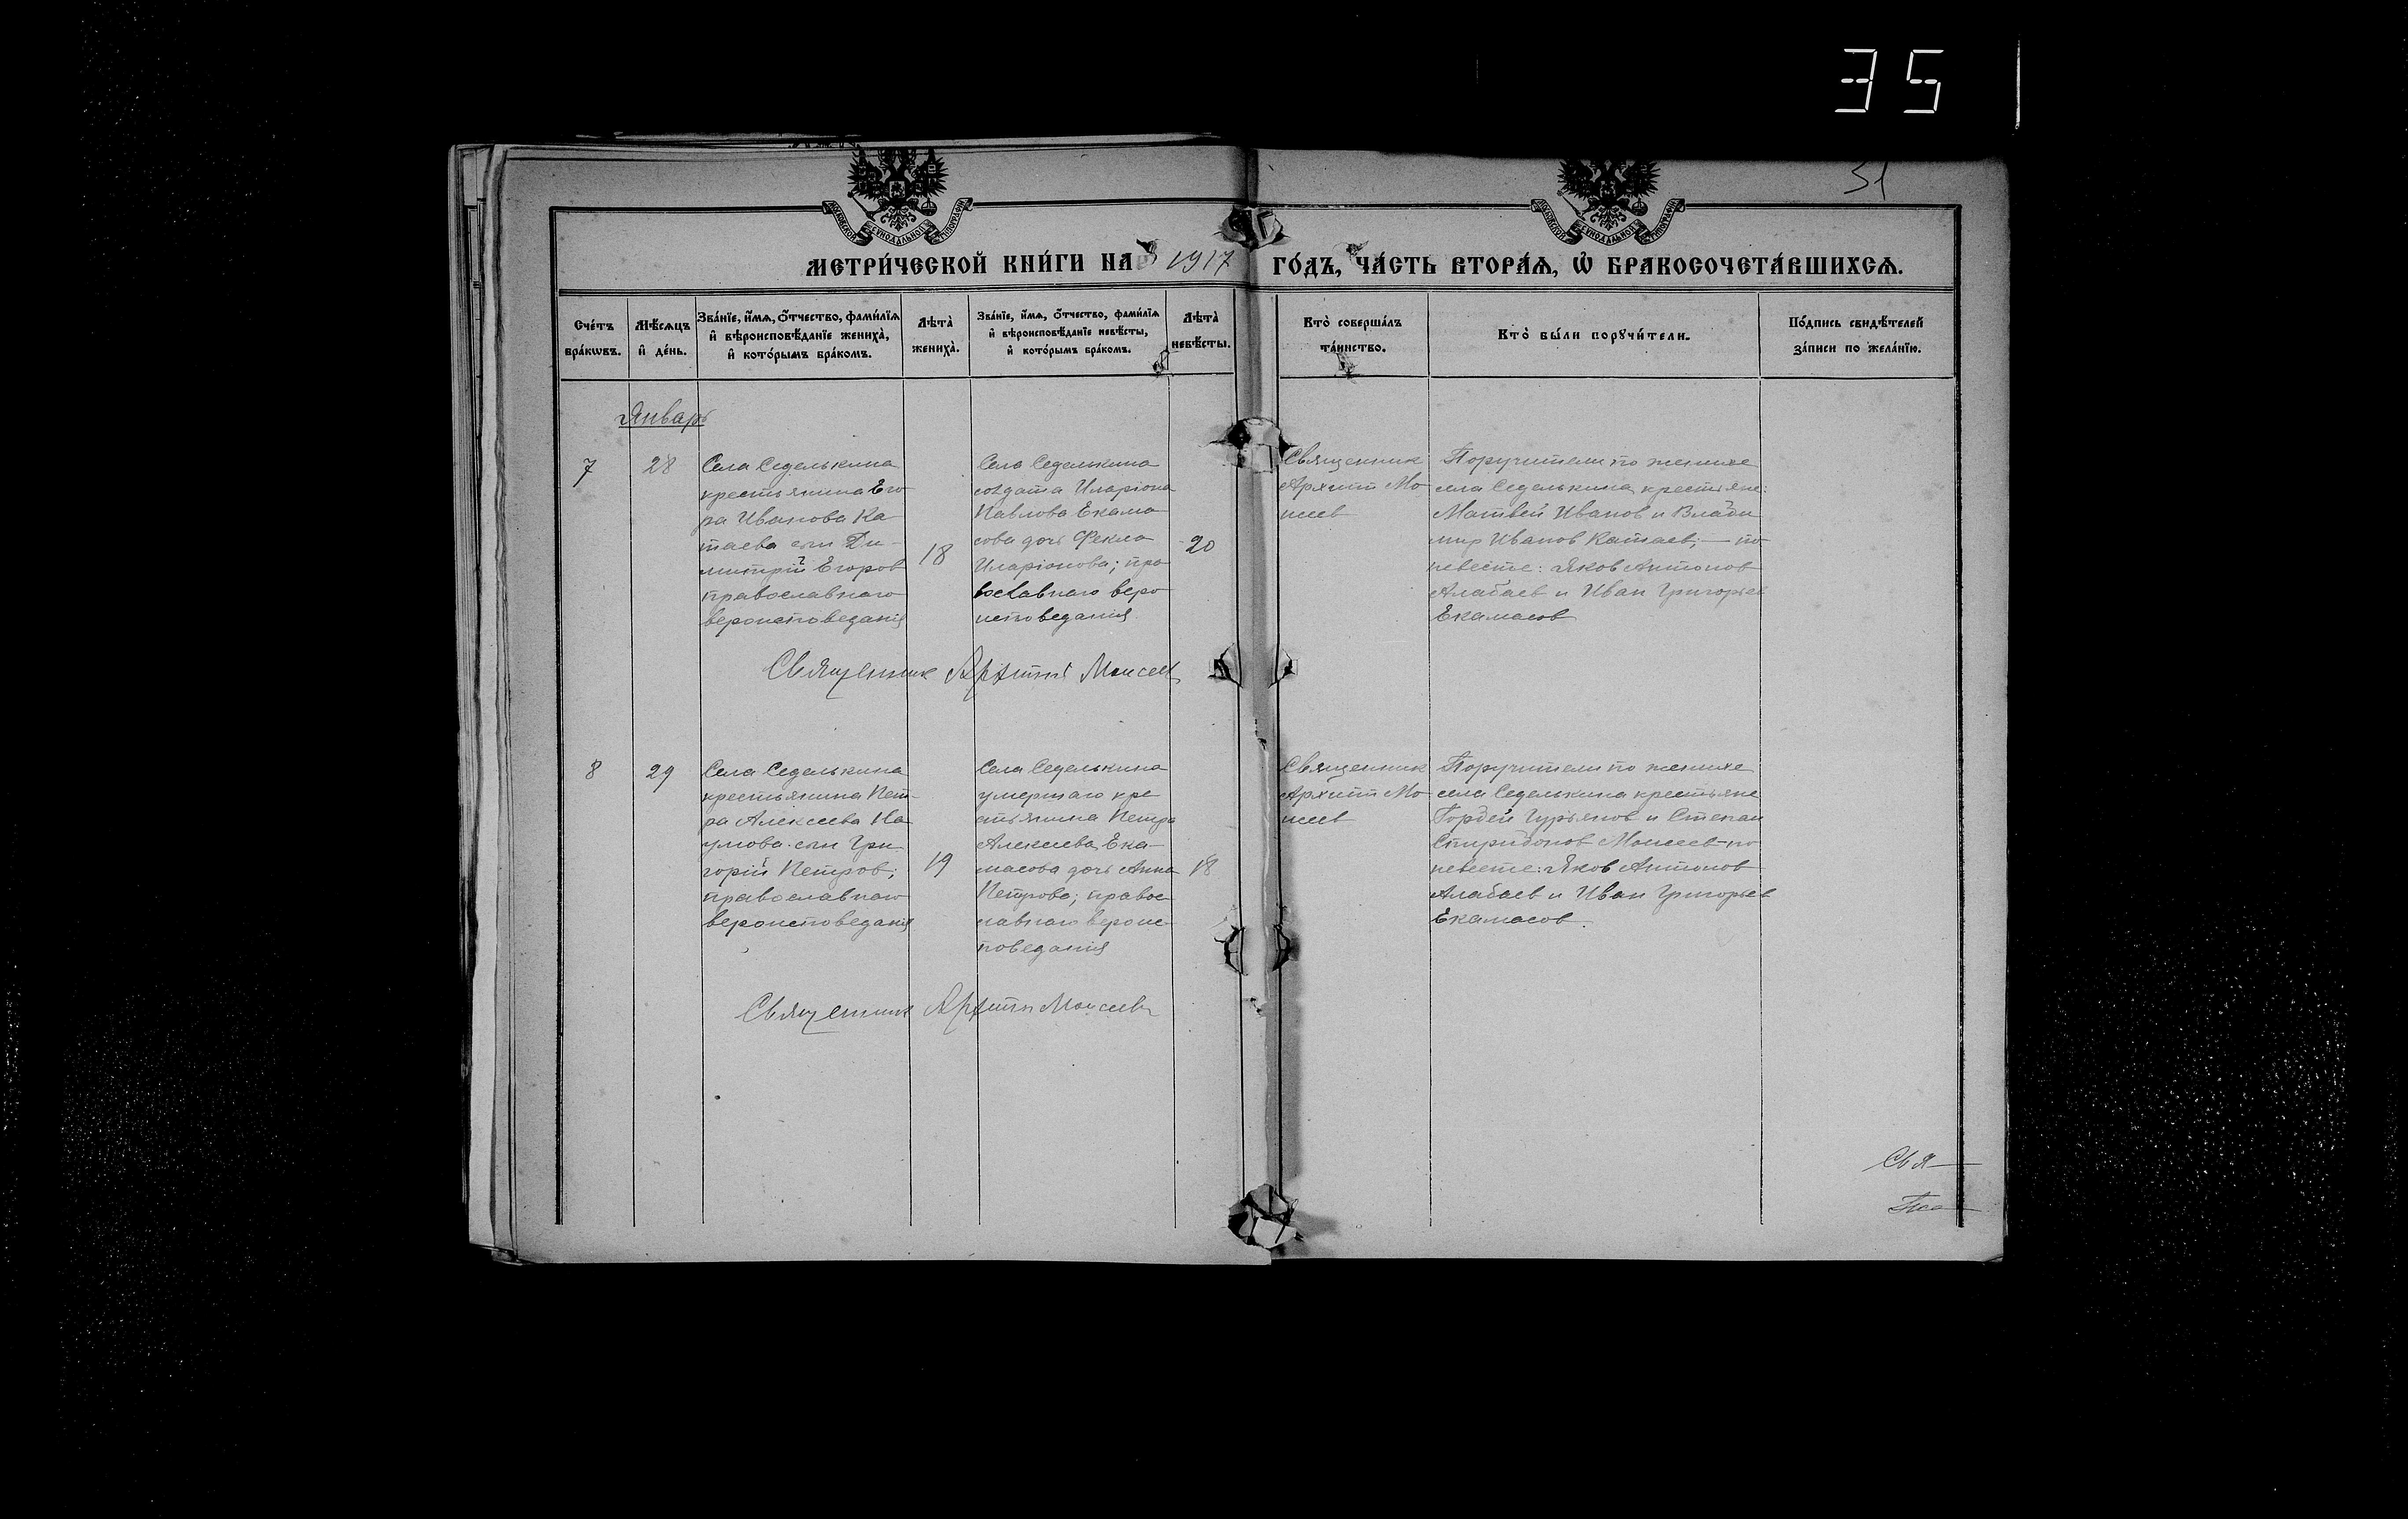 35
31
МОСКОВСКОЙ СѴНОДАЛЬНОЙ ТИПОГРАФІИ
МОСКОВСКОЙ СѴНОДАЛЬНОЙ ТИПОГРАФІИ
МЕТРИ́ЧЕСКОЙ КНИ́ГИ НА 1917 ГО́ДЪ, ЧА́СТЬ ВТОРА́Я, Ѡ҆ БРАКОСОЧЕТА́ВШИХСЯ.
Сче́тъ
бра́кѡвъ.
Мѣ́сяцъ
и҆ де́нь.
Зва́нїе, и҆́мя, ѻ҆́тчество, фами́лїя
и҆ вѣроисповѣ́данїе жениха̀,
и҆ кото́рымъ бра́комъ.
Лѣта̀
жениха̀.
Зва́нїе, и҆́мя, ѻ҆́тчество, фами́лїя
и҆ вѣроисповѣ́данїе невѣ́сты,
и҆ кото́рымъ бра́комъ.
Лѣта̀
невѣ́сты.
Кто̀ соверша́лъ
та́инство.
Кто̀ бы́ли порꙋчи́тели.
По́дпись свидѣ́телей
за́писи по жела́нїю.
Январь
7
28
Села Седелькина
крестьянина Его
ра Иванова Ка
таева сын Ди-
митрій Егоров
православнаго
вероисповеданія
18
Села Седелькина
солдата Иларіона
Павлова Екама
сова дочь Фекла
Иларіонова; пра
вославнаго веро
исповеданія
20
Священник
Архипп Мо
исеев
Поручители по женихе
села Седелькина крестьяне:
Матвей Иванов и Влади
мир Иванов Катаев; — по
невесте: Яков Антонов
Алабаев и Иван Григорьев
Екамасов
Священник Архипп Моисеев
8
29
Села Седелькина
крестьянина Пет-
ра Алексеева На
умова сын Гри
горій Петров;
православнаго
вероисповеданія
19
Села Седелькина
умершаго кре
стьянина Петра
Алексеева Ека-
масова дочь Анна
Петрова; правос
лавнаго вероис
поведанія
18
Священник
Архипп Мо
исеев
Поручители по женихе
села Седелькина крестьяне
Гордей Гурьянов и Степан
Спиридонов Моисеев по
невесте: Яков Антонов
Алабаев и Иван Григорьев
Екамасов.
Священник Архипп Моисеев
Свя—
Пса—